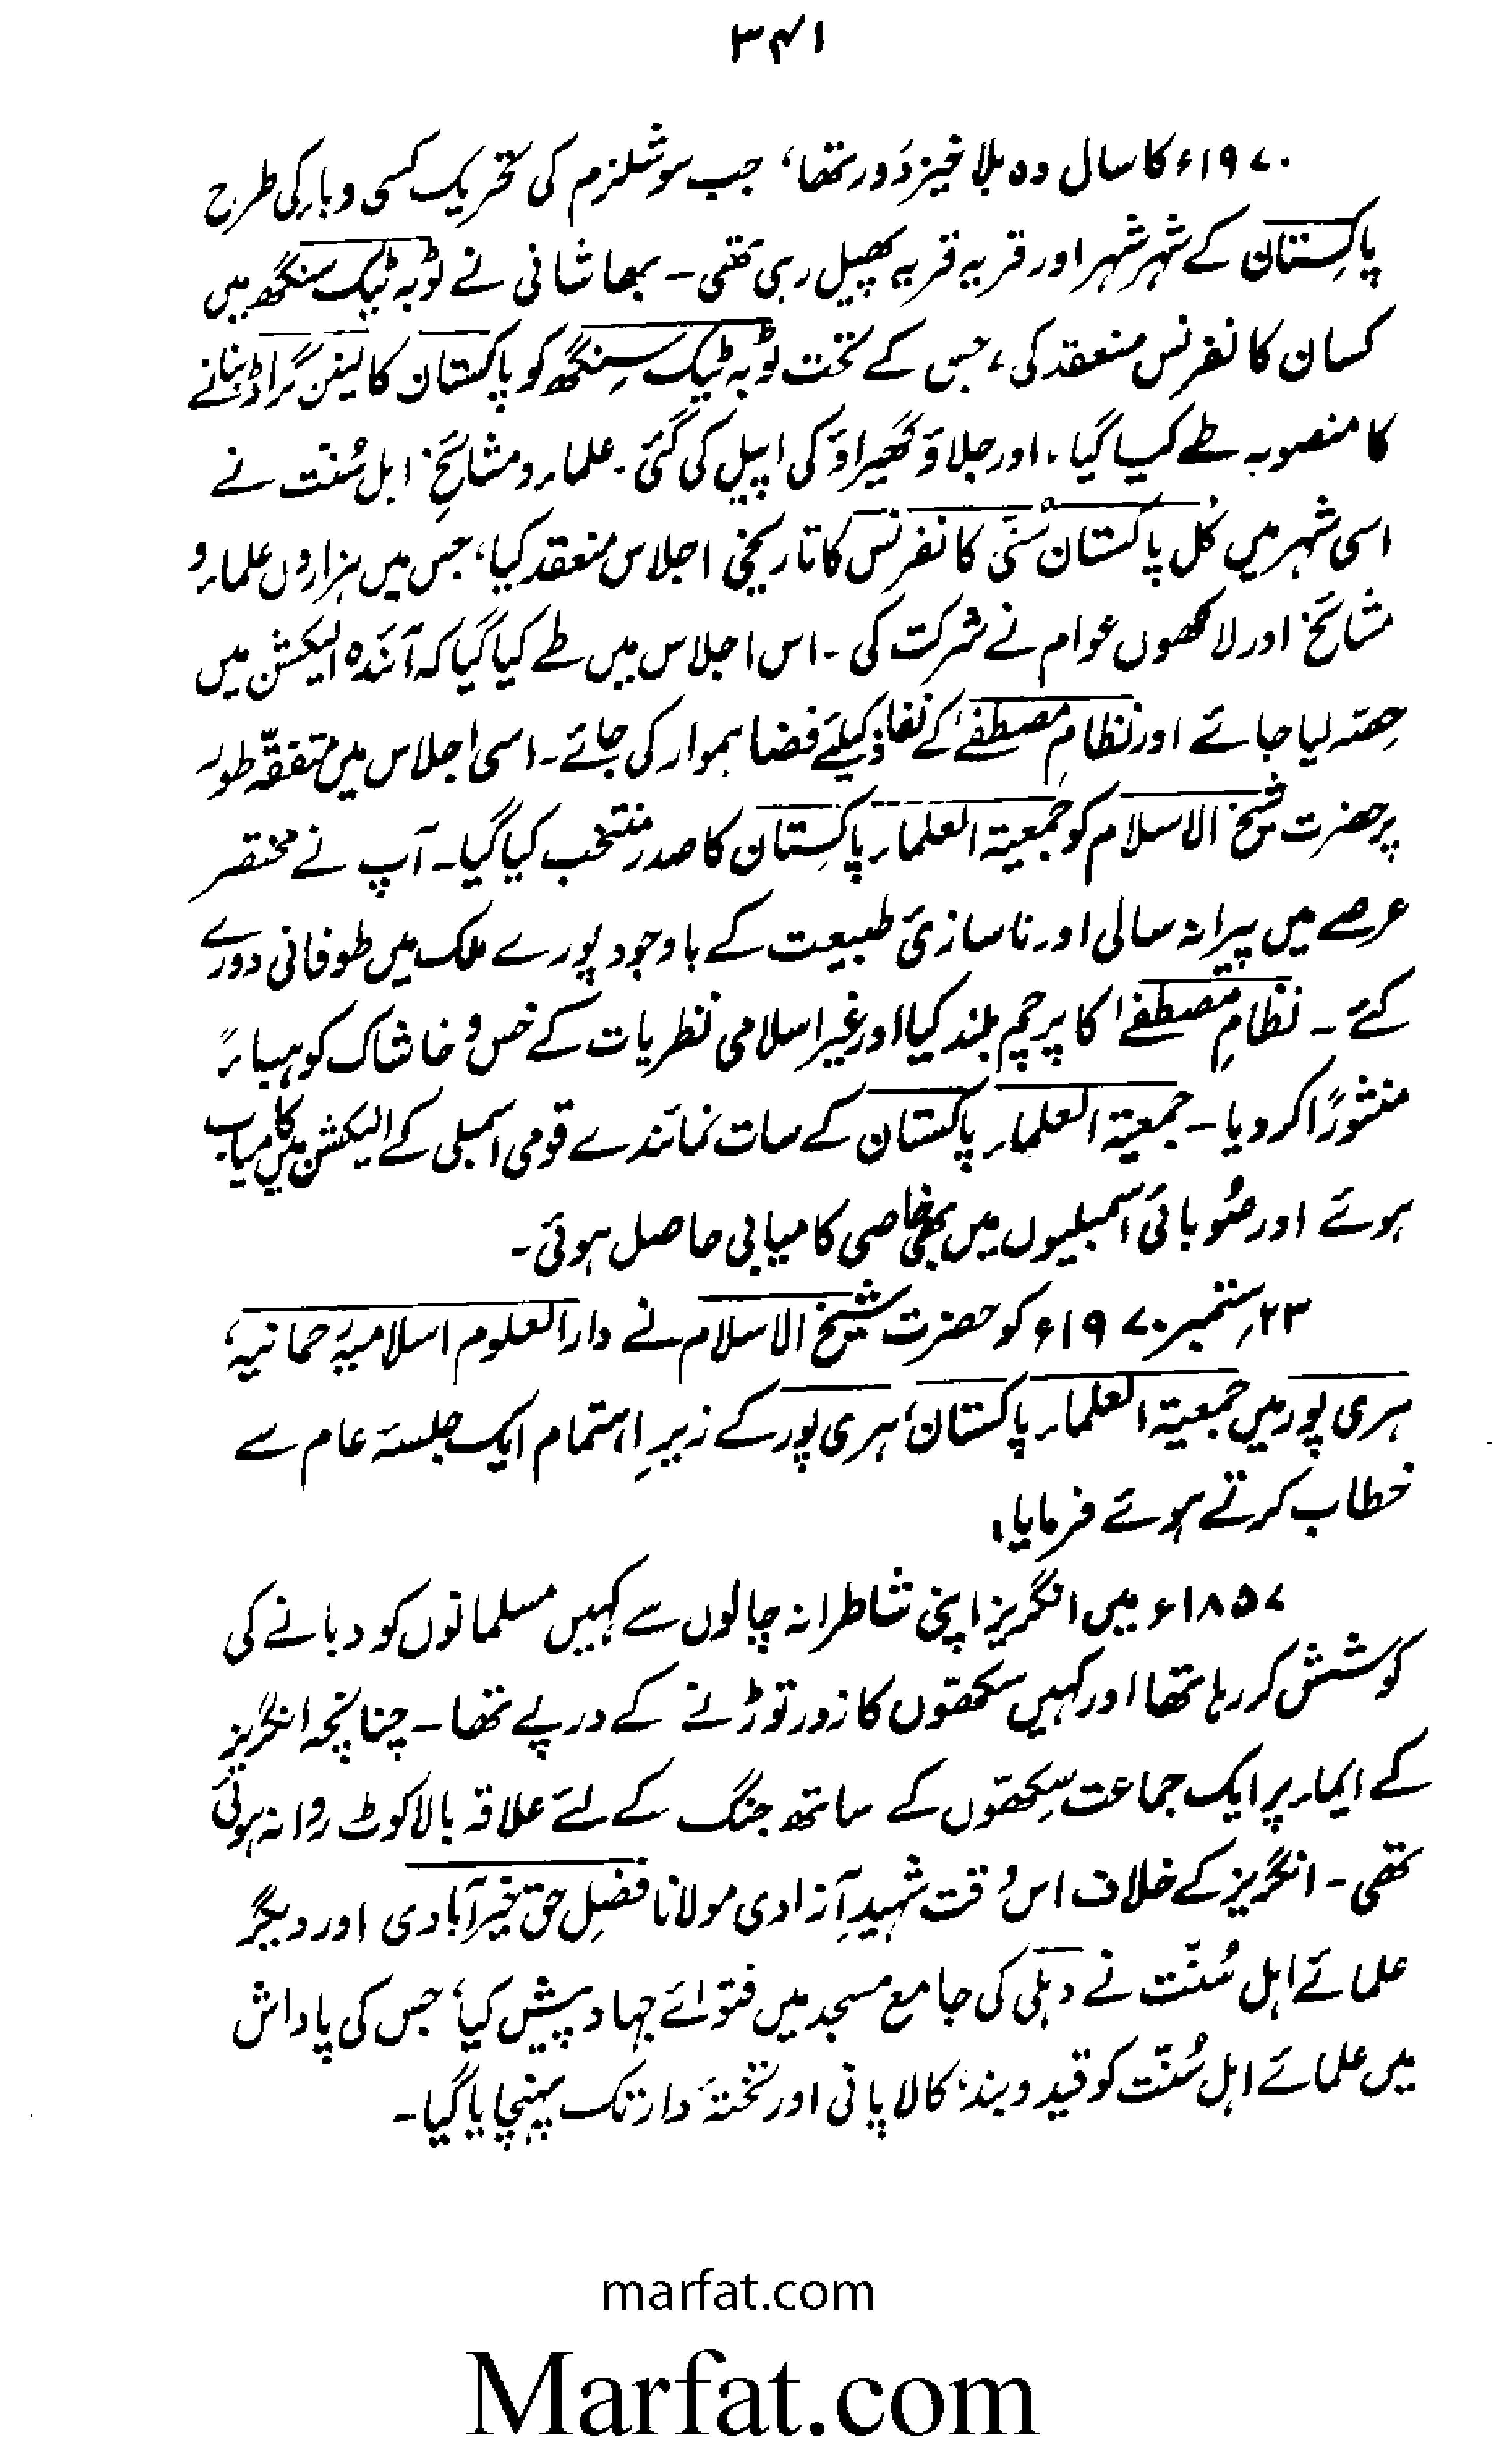 ۳۴۱
۱۹۷۰ء کا سال وہ بلا خیز دَور تھا، جب سوشلزم کی تحریک کسی وبا کی طرح
پاکِستان کے شہر شہر اور قریہ قریہ پھیل رہی تھی۔ بھاشانی نے ٹوبہ ٹیک سنگھ میں
کسان کانفرنس منعقد کی، جس کے تحت ٹوبہ ٹیک سِنگھ کو پاکستان کا لینن گراڈ بنانے
کا منصوبہ طے کیا گیا، اور جلاؤ گھیراؤ کی اپیل کی گئی۔ علماء و مشائخِ اہل سُنّت نے
اسی شہر میں کُل پاکستان سُنّی کانفرنس کا تاریخی اجلاس منعقد کیا، جس میں ہزاروں علماء و
مشائخ اور لاکھوں عوام نے شرکت کی۔ اس اجلاس میں طے کیا گیا کہ آئندہ الیکشن میں
حِصّہ لیا جائے اور نظامِ مصطفےٰ کے نفاذ کیلئے فضا ہموار کی جائے۔ اسی اجلاس میں متفقّہ طور
پر حضرت شیخ الاسلام کو جمعیۃ العلماء پاکِستان کا صدر منتخب کیا گیا۔ آپ نے مختصر
عرصے میں پیرانہ سالی اور ناسازئ طبیعت کے باوجود پورے ملک میں طوفانی دورے
کئے۔ نظامِ مصطفےٰ کا پرچم بلند کیا اور غیر اسلامی نظریات کے خس و خاشاک کو ہباءً
منثورًا کر دیا۔ جمعیۃ العلماء پاکستان کے سات نمائندے قومی اسمبلی کے الیکشن میں کامیاب
ہوئے اور صُوبائی اسمبلیوں میں بھی خاصی کامیابی حاصل ہوئی۔
۲۳ ستمبر ۱۹۷۰ء کو حضرت شیخ الاسلام نے دارالعلوم اسلامیہ رحمانیہ،
ہری پور میں جمعیۃ العلماء پاکستان، ہری پور کے زیرِ اہتمام ایک جلسۂ عام سے
خطاب کرتے ہوئے فرمایا:
۱۸۵۷ء میں انگریز اپنی شاطرانہ چالوں سے کہیں مسلمانوں کو دبانے کی
کوشش کر رہا تھا اور کہیں سکھوں کا زور توڑنے کے درپے تھا۔ چنانچہ انگریز
کے ایماء پر ایک جماعت سِکھوں کے ساتھ جنگ کے لئے علاقہ بالاکوٹ روانہ ہوئی
تھی۔ انگریز کے خلاف اس وقت شہیدِ آزادی مولانا فضلِ حق خیر آبادی اور دیگر
علمائے اہل سُنّت نے دہلی کی جامع مسجد میں فتوائے جہاد پیش کیا، جس کی پاداش
میں علمائے اہل سُنّت کو قید و بند، کالا پانی اور تختۂ دار تک پہنچایا گیا۔
marfat.com
Marfat.com